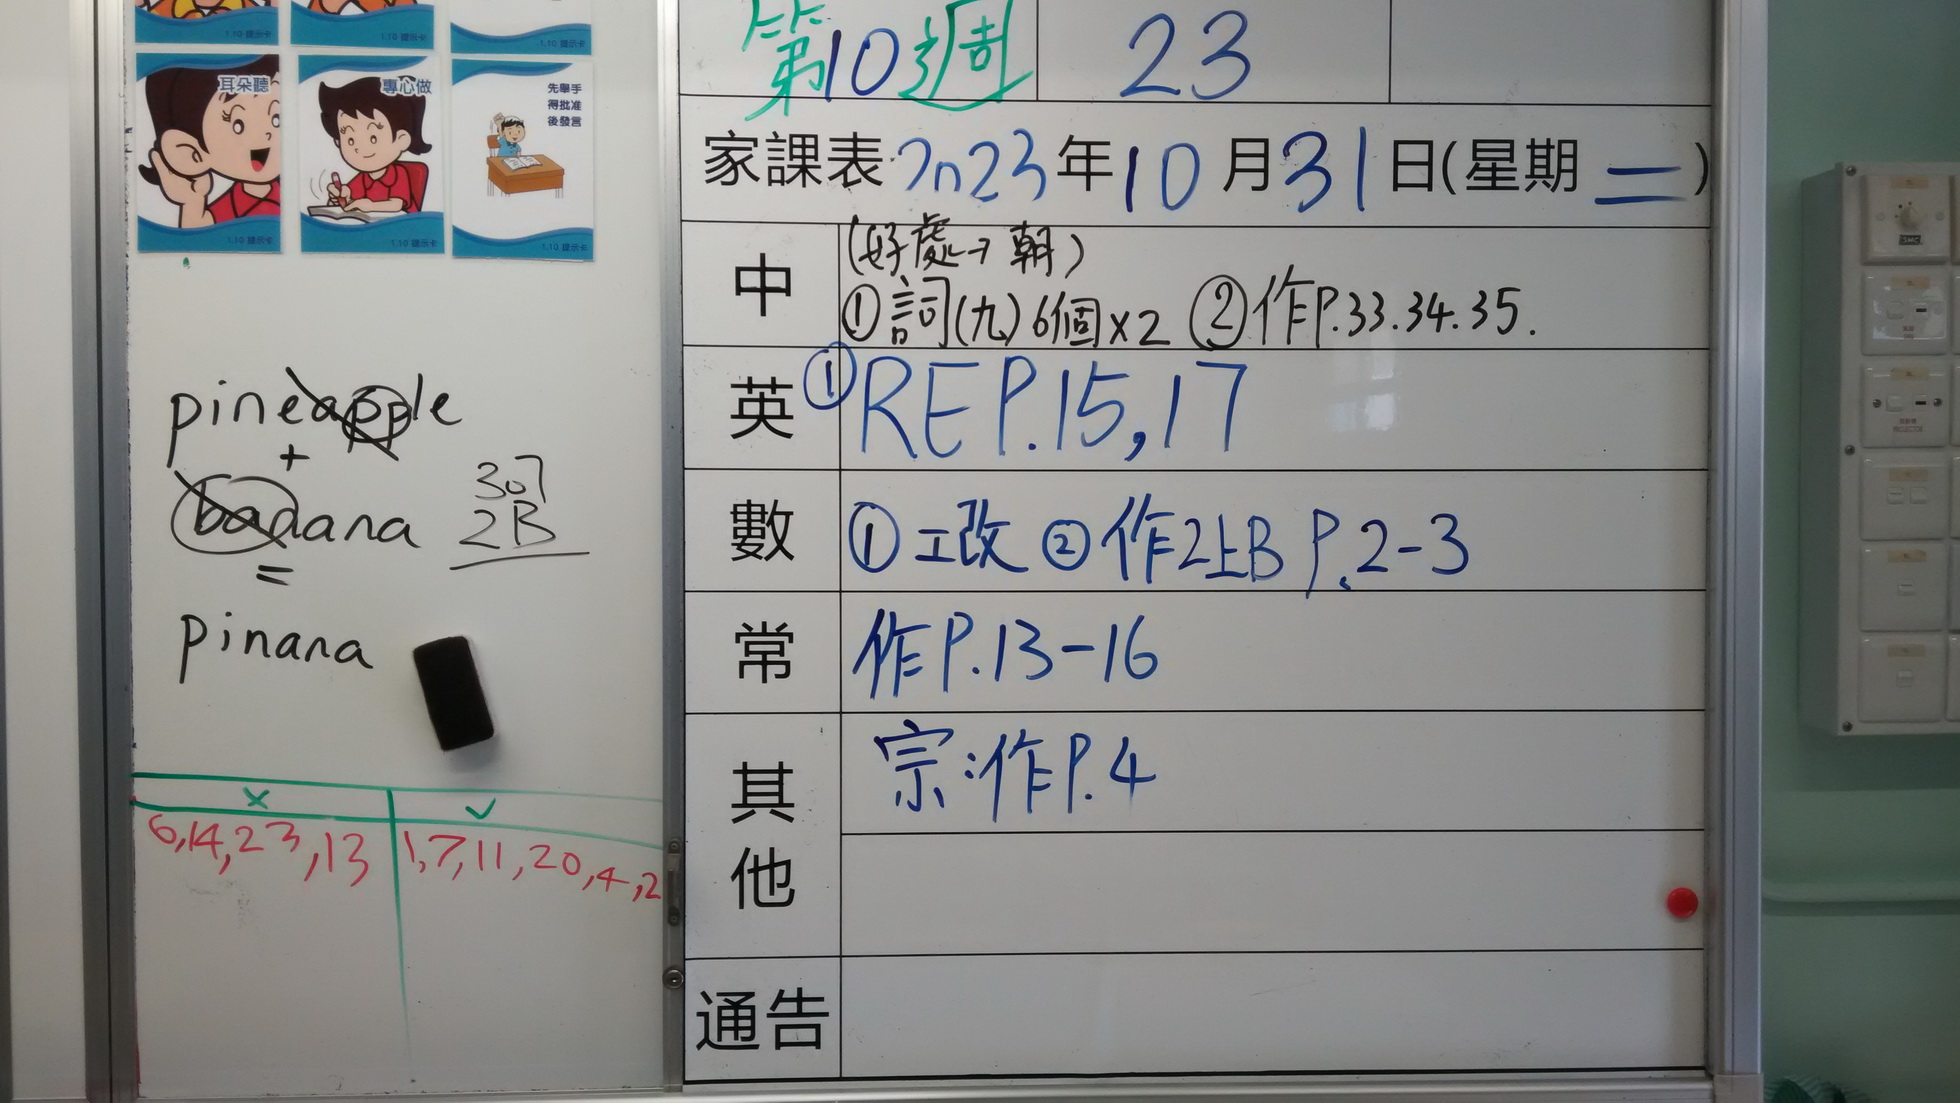 1.10 提示卡
1.10 提示卡
1.10 提示卡
耳朵聽
1.10 提示卡
專心做
1.10 提示卡
先舉手
得批准
後發言
1.10 提示卡
pineapple
+
banana
=
pinana
307
2B
× ✓
6,14,23,13 1,7,11,20,4,2
第10週 23
家課表2023年10月31日(星期二)
中
(好處→朝)
①詞(九)6個×2 ②作P.33.34.35.
英 ①RE P.15,17
數 ①工改 ②作2上B P.2-3
常 作P.13-16
其他
宗:作P.4
通告